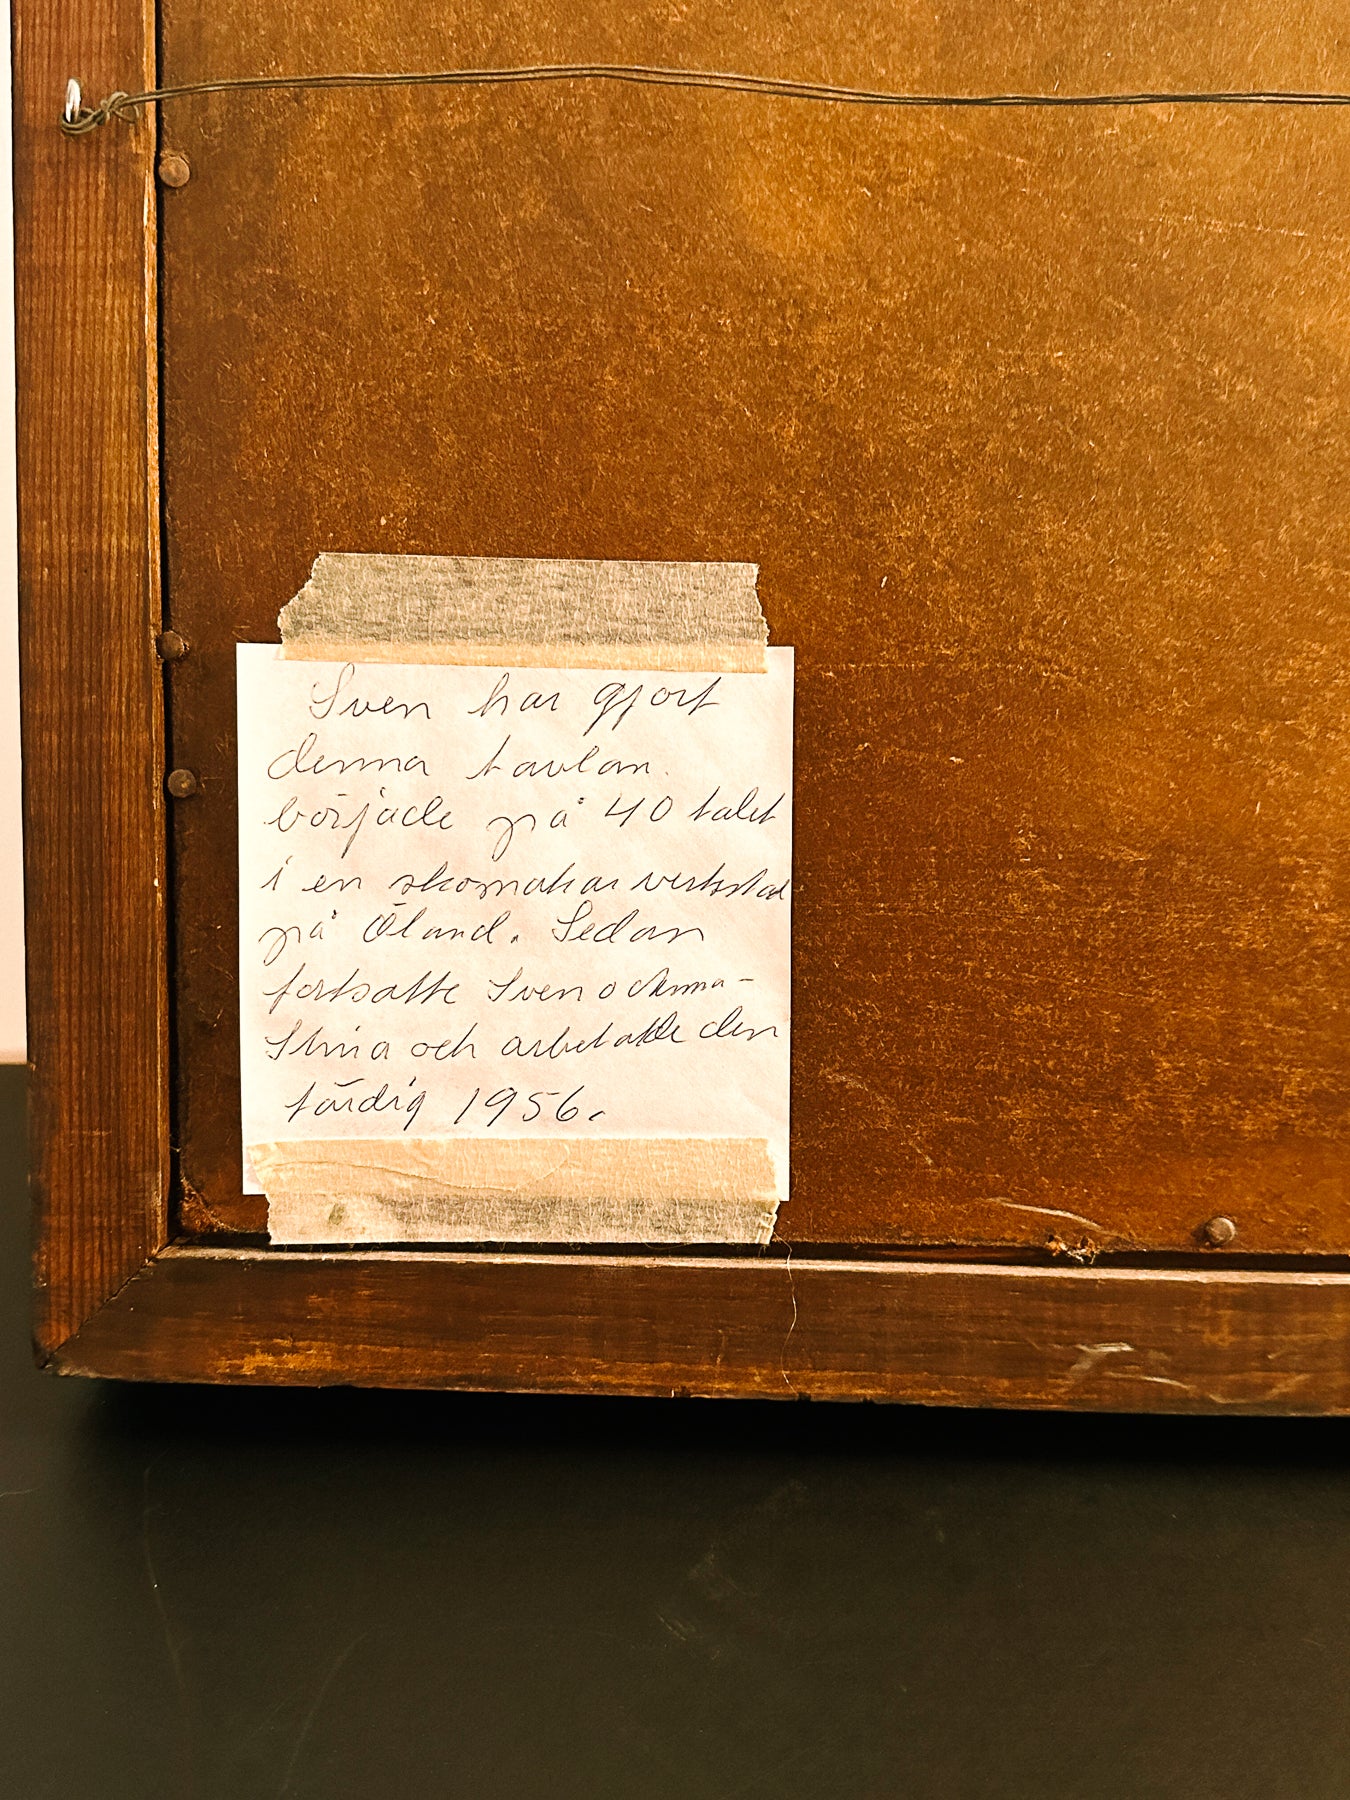 Sven har gjort
denna tavlan.
började på 40 talet
i en skomakar verkstad
på Öland. Sedan
fortsatte Sven o
Stina och arbetade den
färdig 1956.